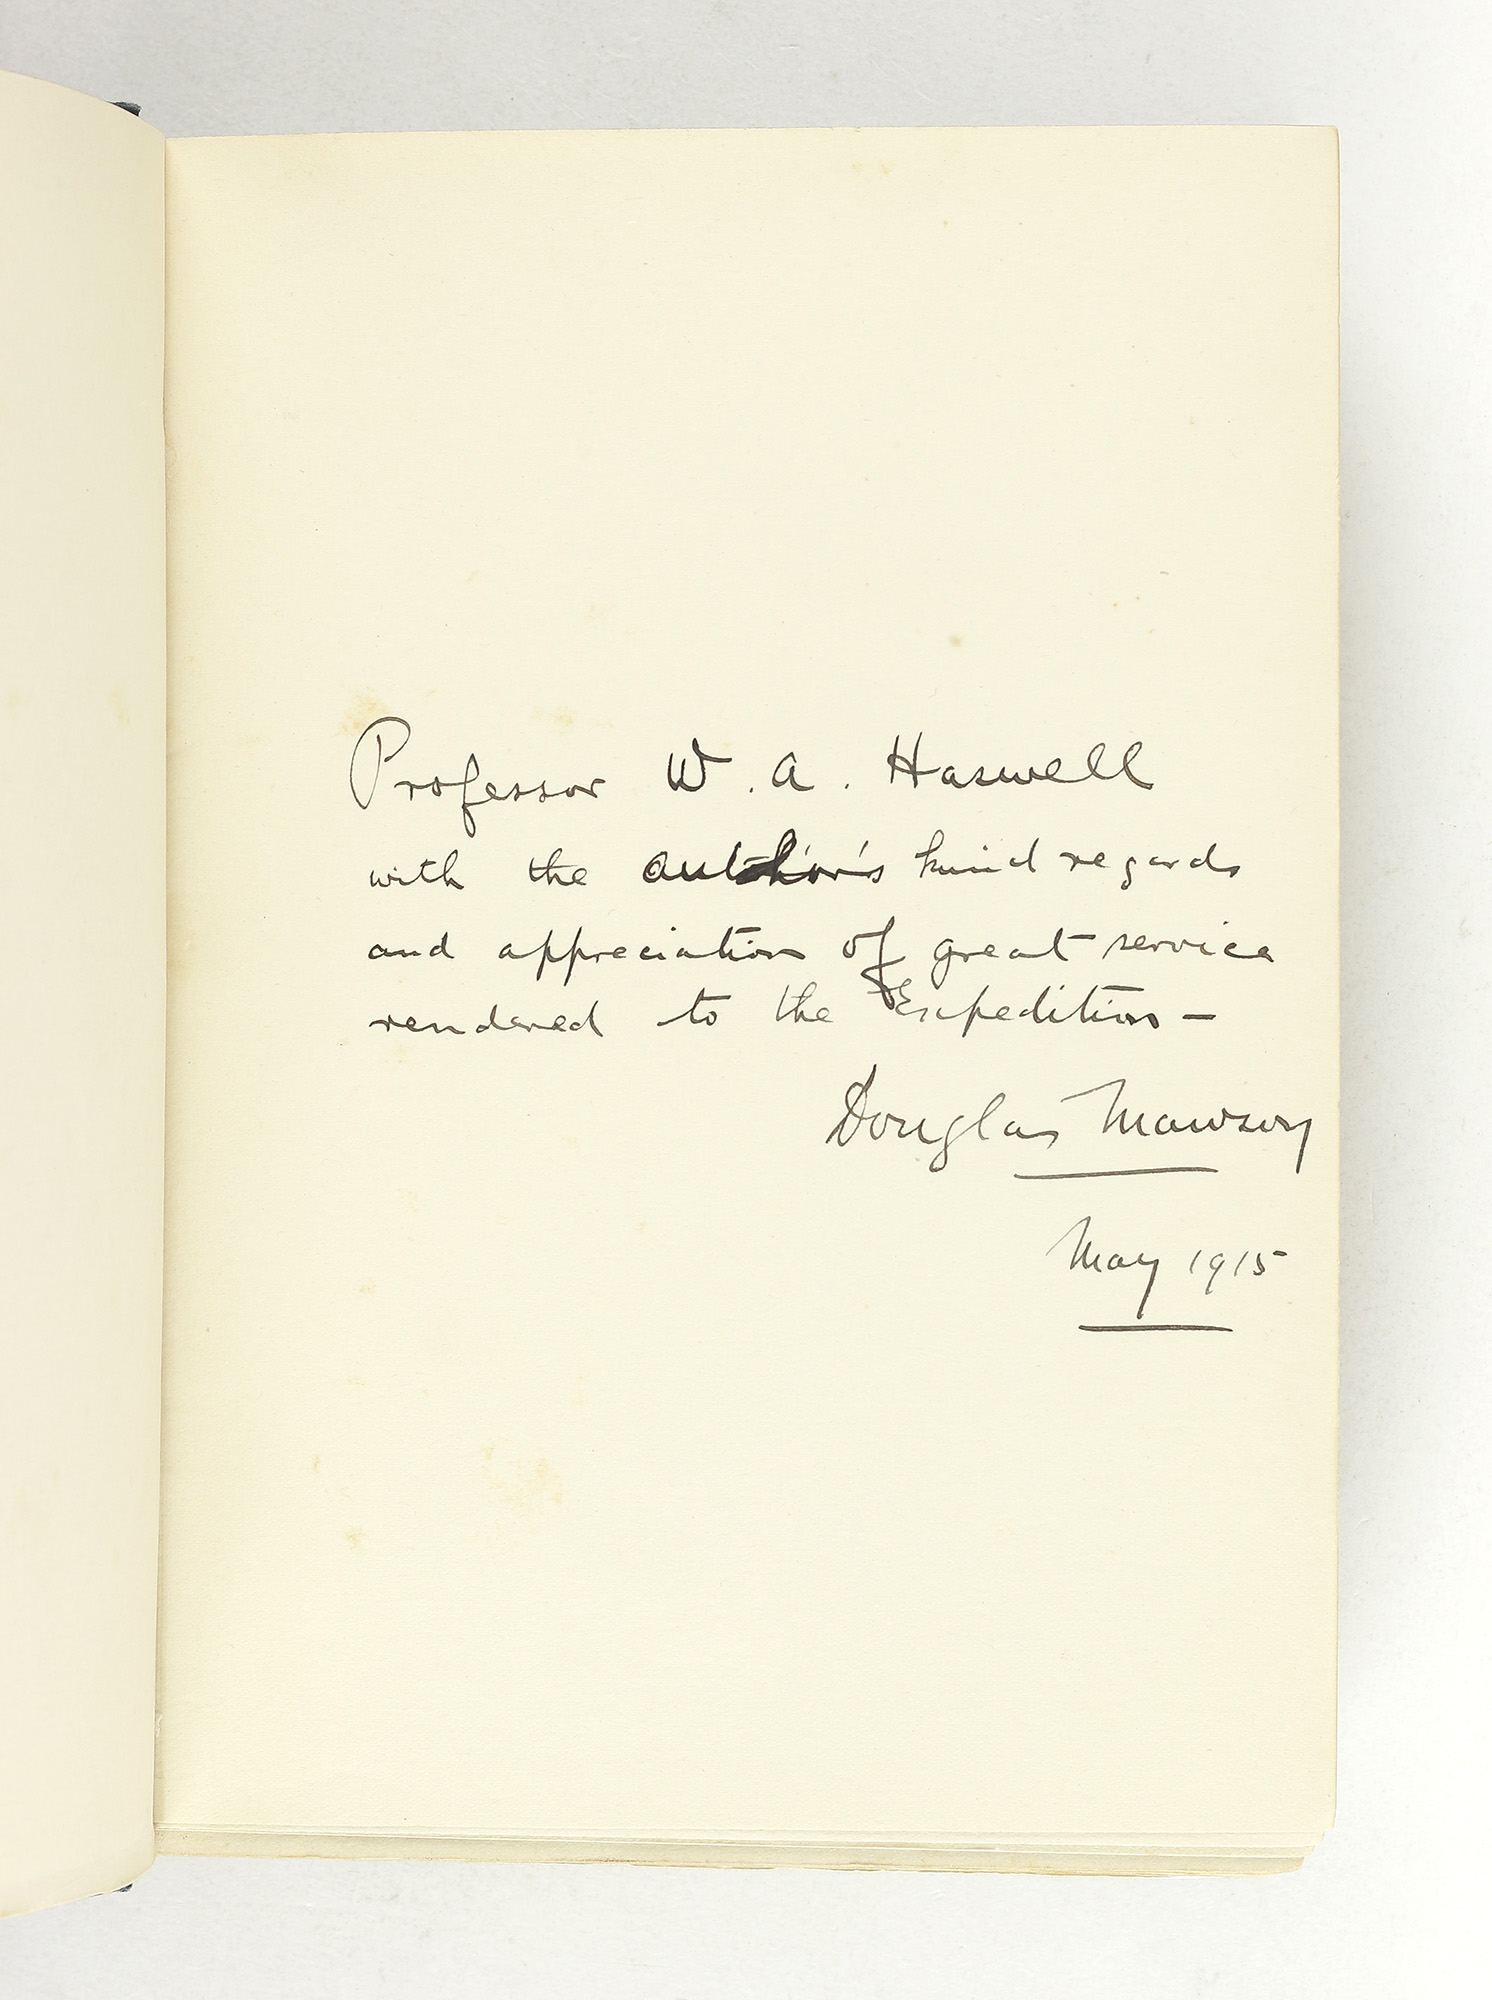 Professor W. A. Haswell
with the author's kind regards
and appreciation of great service
rendered to the Expedition —
Douglas Mawson
May 1915